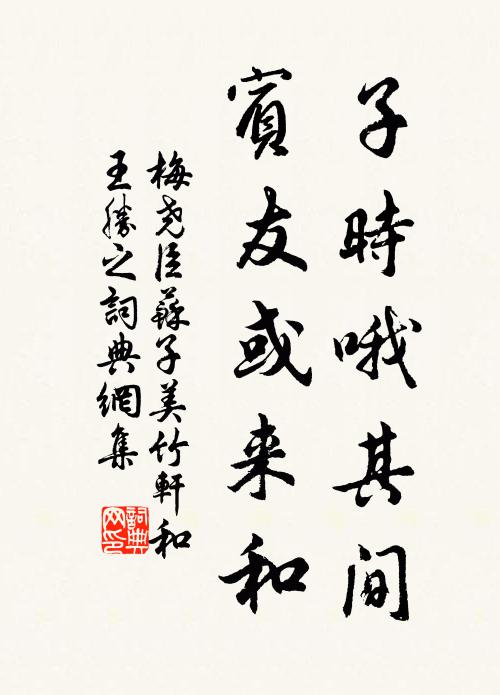 子時哦其間
賓友或来和
梅尧臣蘇子美竹軒和
王勝之詞典網集
詞典网印